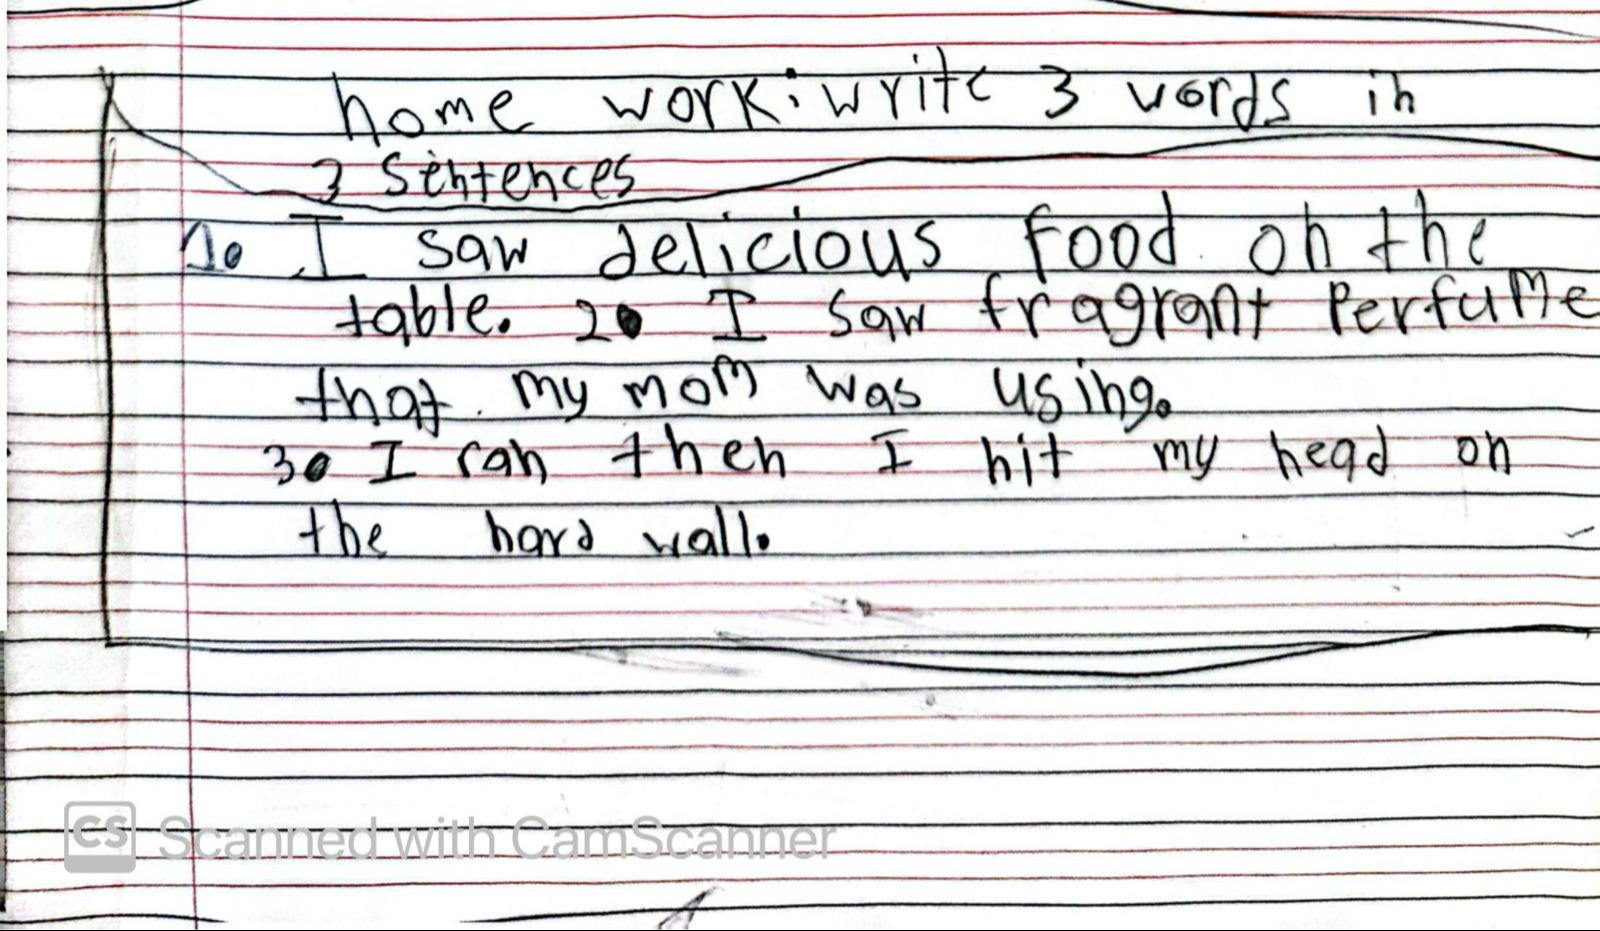 home work: write 3 words in
3 sentences
1. I saw delicious food on the
table. 2. I saw fragrant Perfume
that my mom was using.
3. I ran then I hit my head on
the hard wall.
CS Scanned with CamScanner